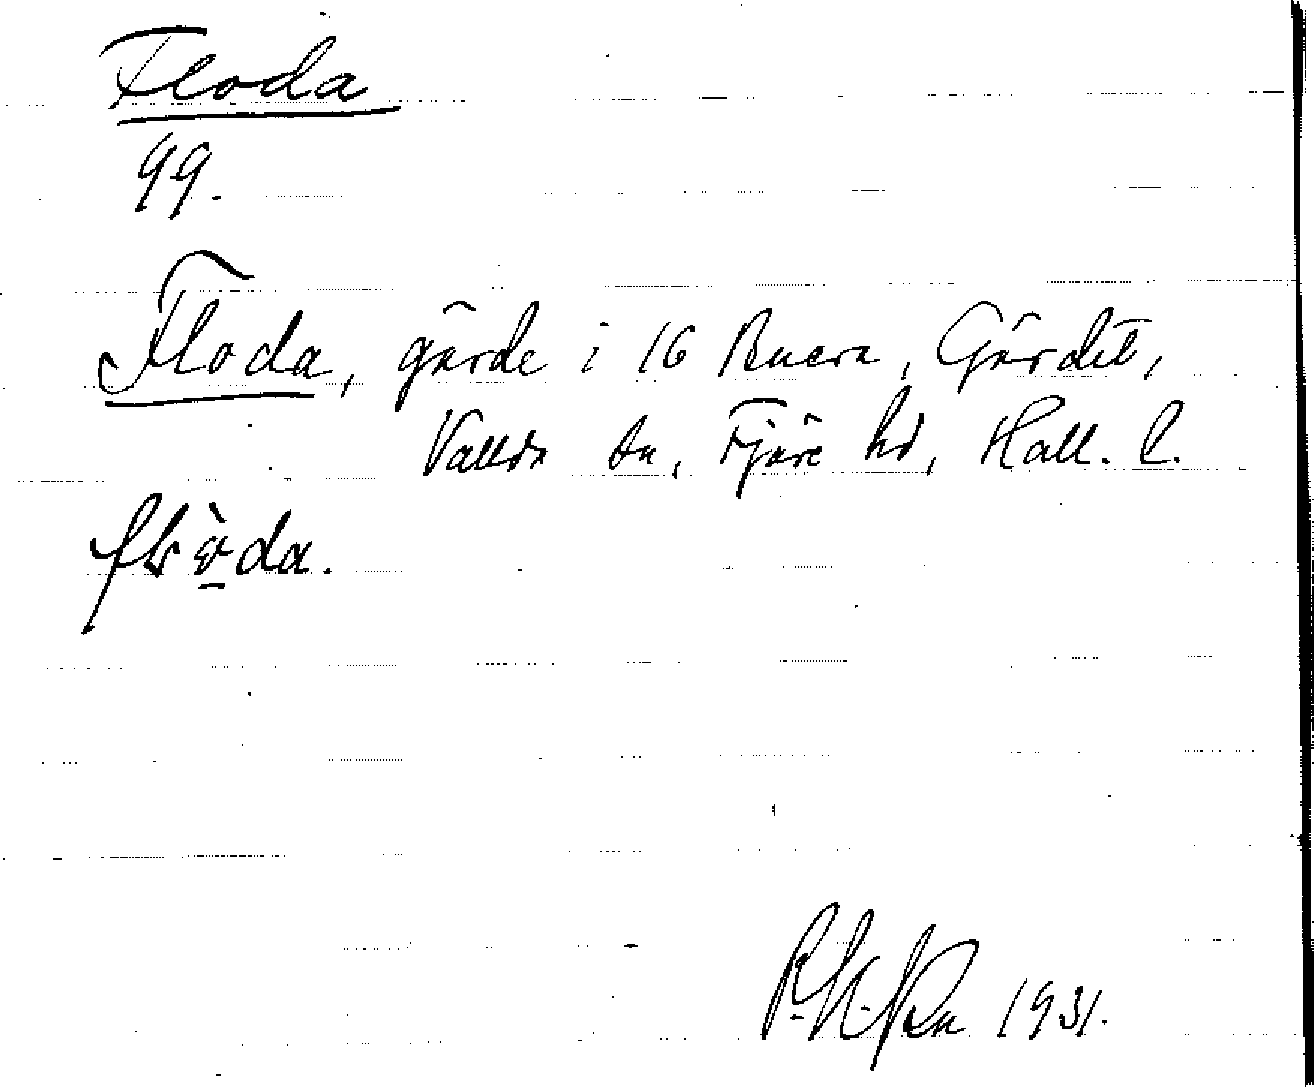 Floda
99.
Floda, gärde i 16 Buera, Gärdet,
Vallda sn, Fjäre hd, Hall. l.
da.
1931.